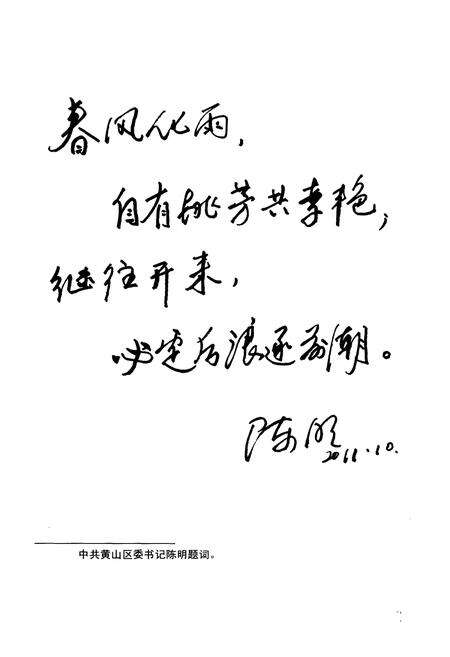 春风化雨，
自有桃芳共李艳；
继往开来，
必定后浪逐前潮。
陈明
2011.10.
中共黄山区委书记陈明题词。